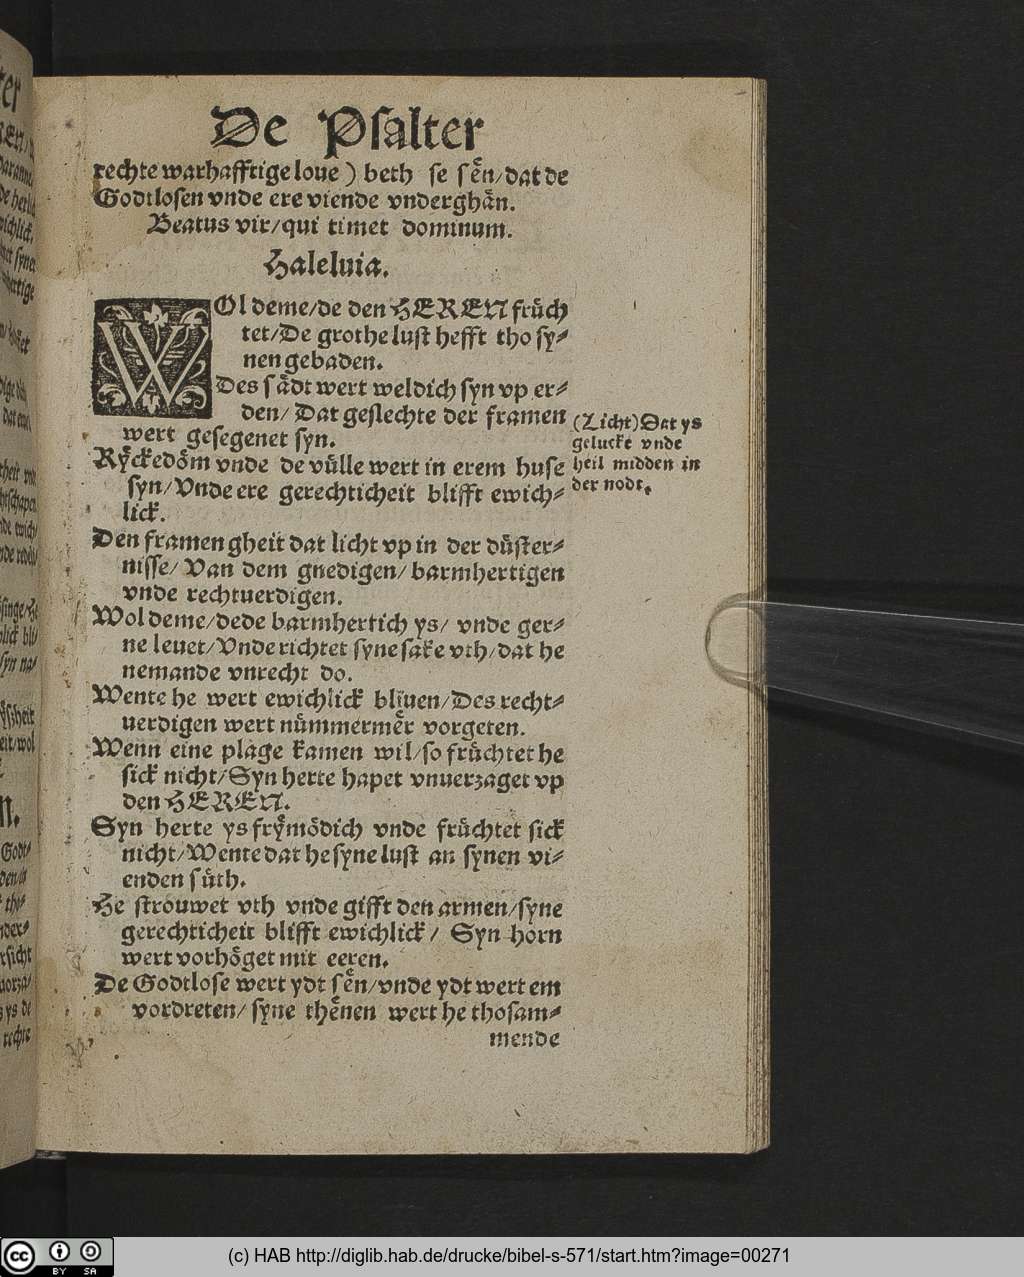 De Psalter
rechte warhafftige loue ) beth se sên/dat de
Godtlosen vnde ere viende vnderghân.
Beatus vir/qui timet dominum.
Haleluia.
WOl deme/de den HEREN früch
tet/De grothe lust hefft tho sy⸗
nen gebaden.
Des sådt wert weldich syn vp er⸗
den/ Dat geslechte der framen
wert gesegenet syn.
Rÿckedôm vnde de vülle wert in erem huse
syn/Vnde ere gerechticheit blifft ewich⸗
lick.
Den framen gheit dat licht vp in der düster⸗
nisse/ Van dem gnedigen/ barmhertigen
vnde rechtuerdigen.
Wol deme/dede barmhertich ys/ vnde ger⸗
ne leuet/Vnde richtet syne sake vth/dat he
nemande vnrecht do.
Wente he wert ewichlick bliuen/Des recht⸗
uerdigen wert nümmermêr vorgeten.
Wenn eine plage kamen wil/so früchtet he
sick nicht/Syn herte hapet vnuerzaget vp
den HEREN.
Syn herte ys frÿmödich vnde früchtet sick
nicht/Wente dat he syne lust an synen vi⸗
enden süth.
He strouwet vth vnde gifft den armen/syne
gerechticheit blifft ewichlick/ Syn horn
wert vorhöget mit eeren.
De Godtlose wert ydt sên/vnde ydt wert em
vordreten/ syne thênen wert he thosam⸗
mende
(Licht) Dat ys
gelucke vnde
heil midden in
der nodt.
(c) HAB http://diglib.hab.de/drucke/bibel-s-571/start.htm?image=00271
cc BY SA